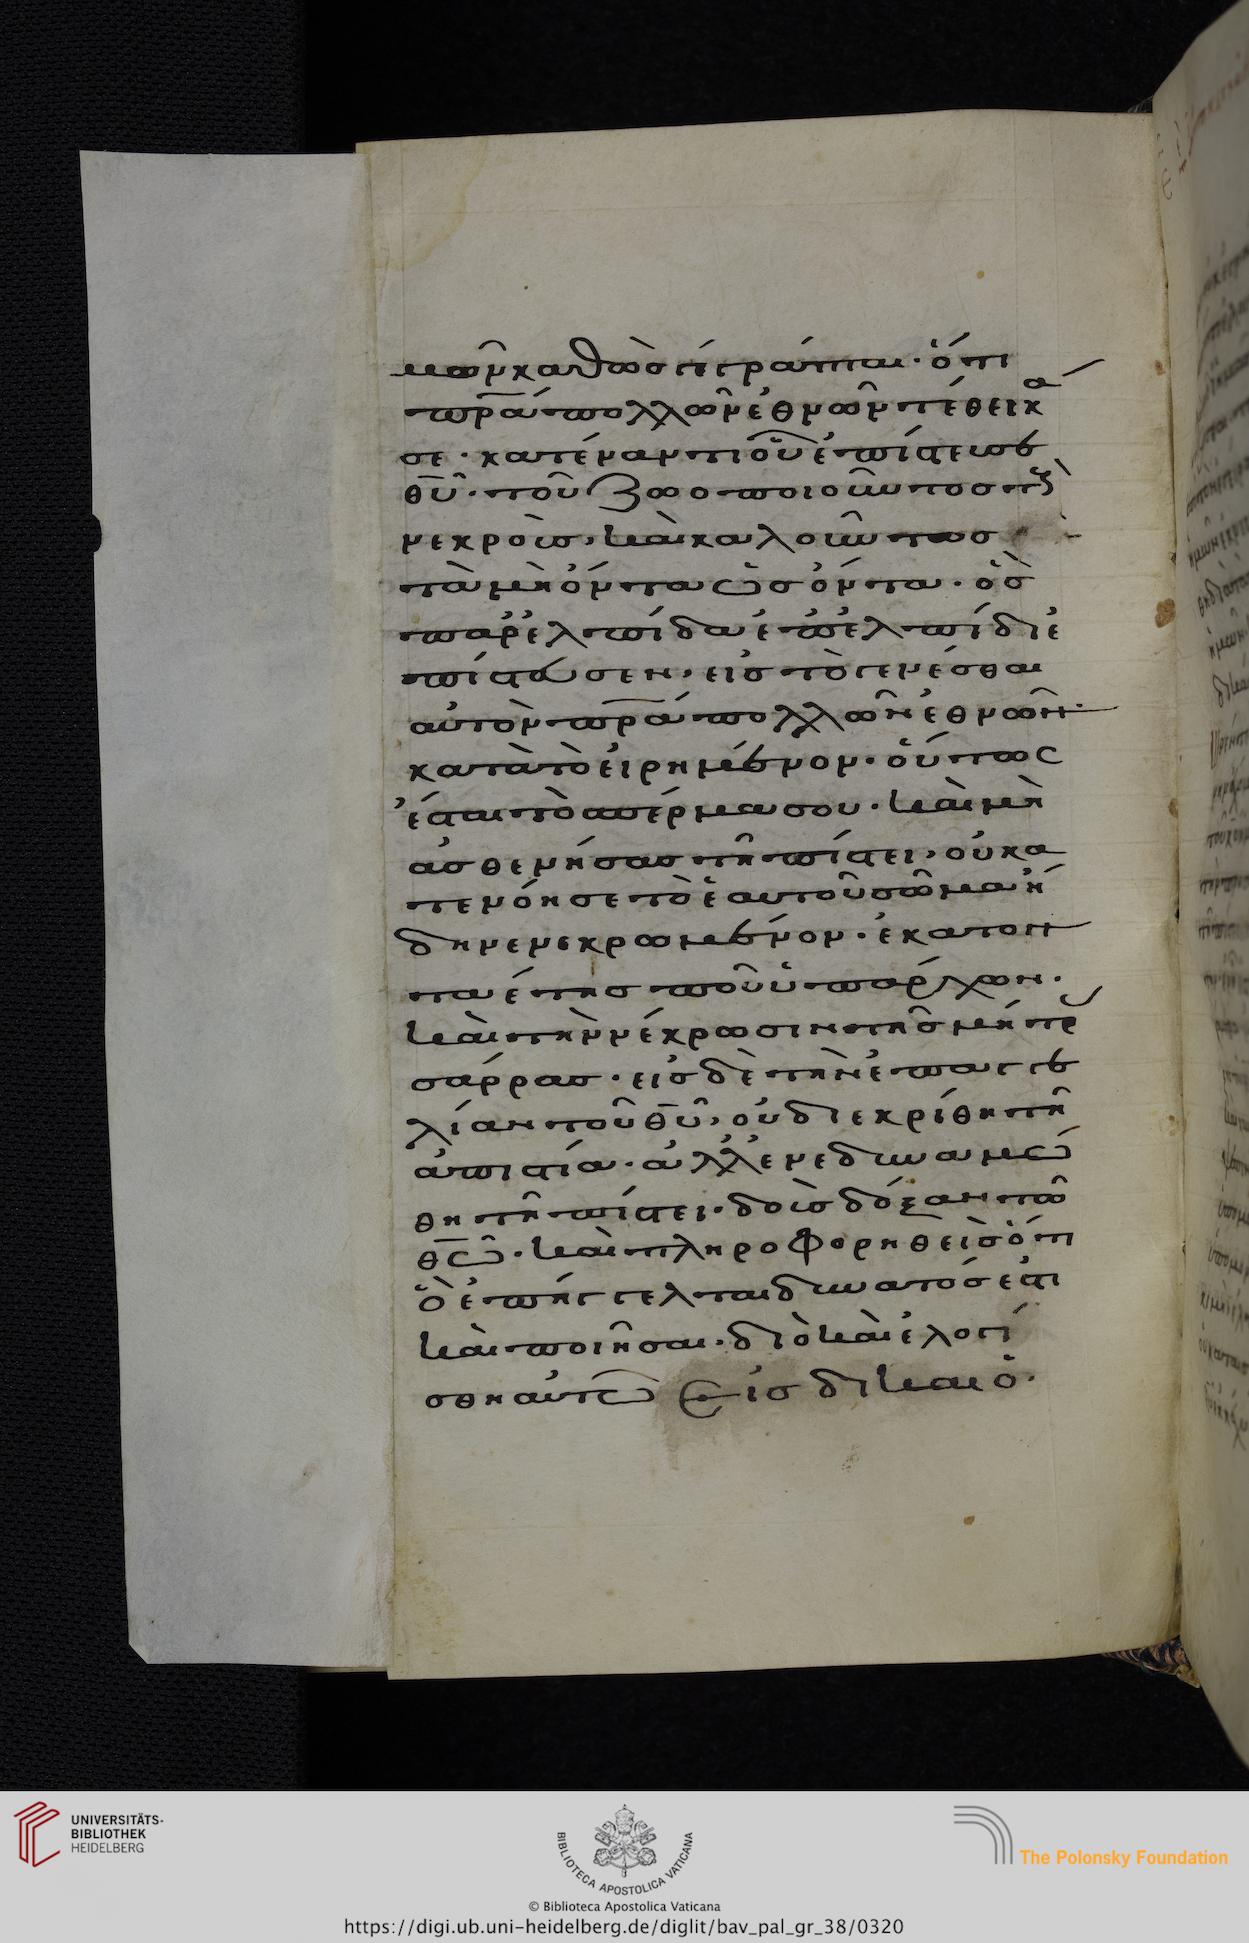 μῶν καθὼς γέγραπται· ὅτι
πρ̅α πολλῶν ἐθνῶν τέθεικα
σε· κατέναντι οὗ ἐπίστευσε
θ̅υ̅· τοῦ ζωοποιοῦντος τοὺς
νεκροὺς, καὶ καλοῦντος
τὰ μὴ ὄντα ὡς ὄντα· ὃς
παρ' ἐλπίδα ἐπ' ἐλπίδι ἐ
πίστευσεν· εἰς τὸ γενέσθαι
αὐτὸν πρ̅α πολλῶν ἐθνῶν·
κατὰ τὸ εἰρημένον· οὕτως
ἔσται τὸ σπέρμα σου· καὶ μὴ
ἀσθενήσας τῇ πίστει, οὐ κα
τενόησε τὸ ἑαυτοῦ σῶμα ἤ
δη νενεκρωμένον· ἑκατον
ταέτης που ὑπάρχων·
καὶ τὴν νέκρωσιν τῆς μήτρας
σάρρας· εἰς δὲ τὴν ἐπαγγε
λίαν τοῦ θ̅υ̅, οὐ διεκρίθη τῇ
ἀπιστία· ἀλλ' ἐνεδυναμώ
θη τῇ πίστει· δοὺς δόξαν τῶ
θ̅ω̅· καὶ πληροφορηθεὶς ὅτι
ὃ ἐπήγγελται δυνατός ἐστι
καὶ ποιῆσαι· διὸ καὶ ἐλογί
σθη αὐτῶ εἰς δικαιο·
UNIVERSITÄTS-
BIBLIOTHEK
HEIDELBERG
BIBLIOTECA APOSTOLICA VATICANA
The Polonsky Foundation
© Biblioteca Apostolica Vaticana
https://digi.ub.uni-heidelberg.de/diglit/bav_pal_gr_38/0320